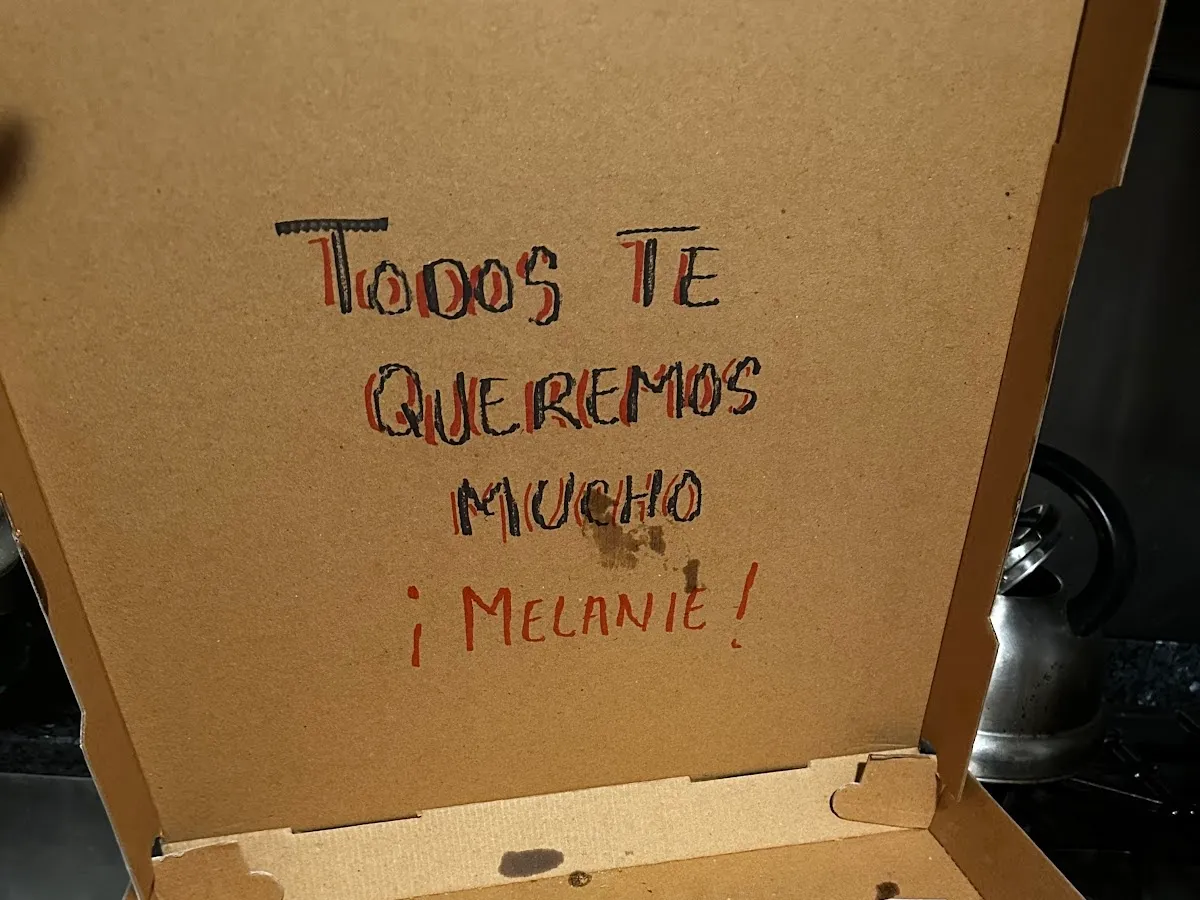 TODOS TE
QUEREMOS
MUCHO
¡MELANIE!